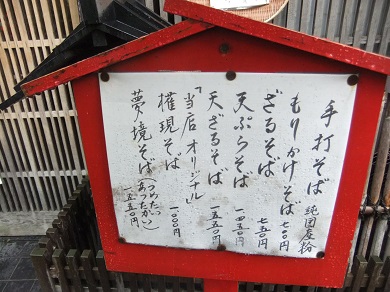 手打そば 純国産粉
もりかけそば 七〇〇円
ざるそば 七五〇円
天ぷらそば 一四五〇円
天ざるそば 一五五〇円
「当店オリジナル」
権現そば 一〇〇〇円
夢境そば(つめたい
あったかい) 一五五〇円